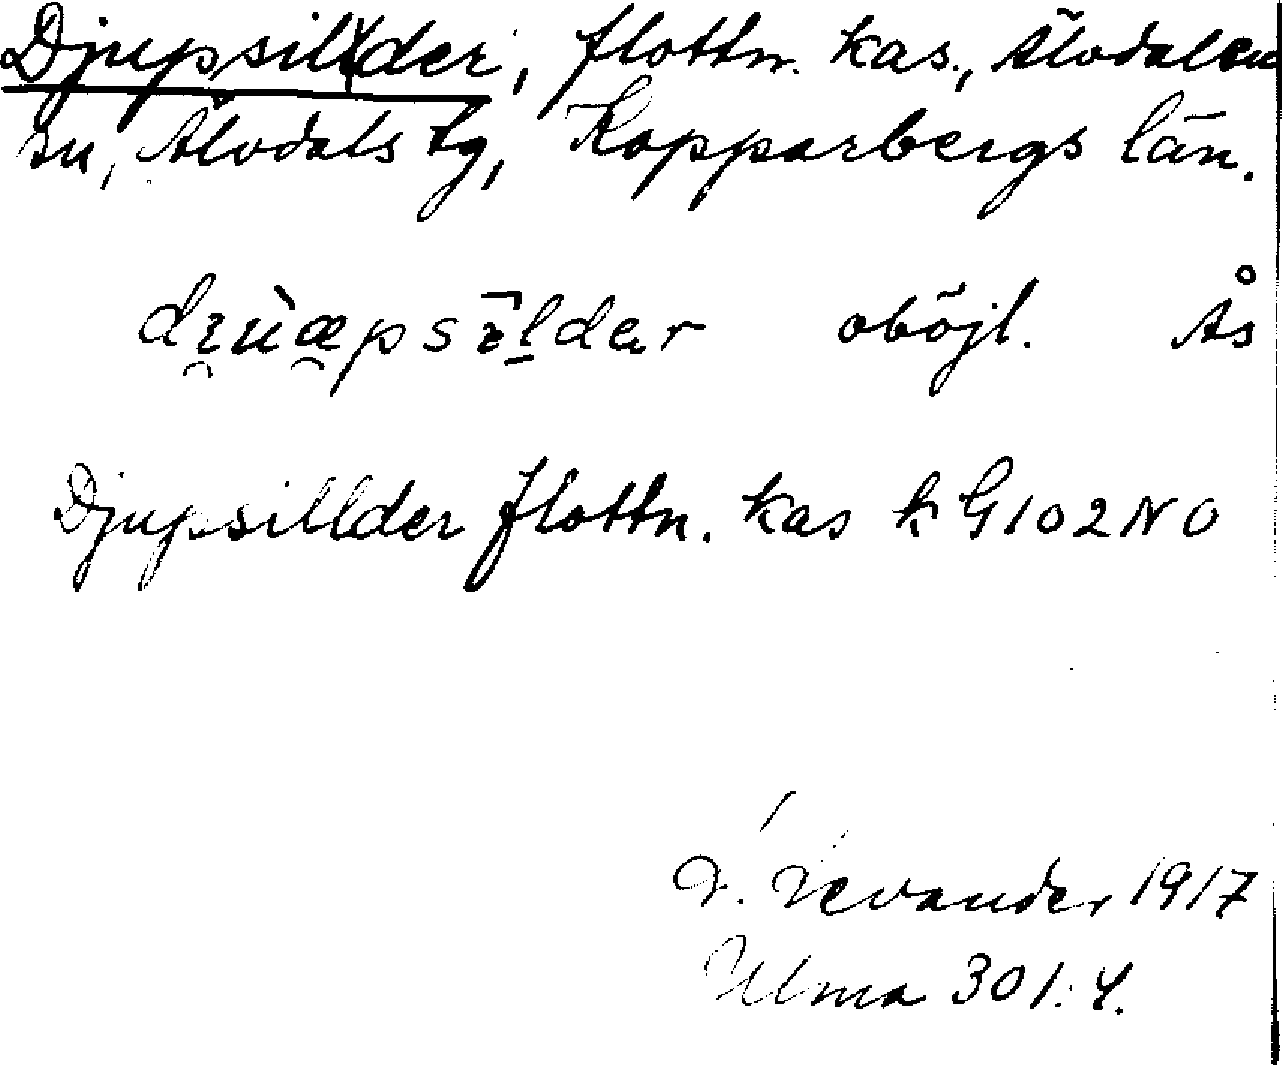 Djupsillder, flottn. kas., Älvdalen
sn, Älvdals tg, Kopparbergs län.
oböjl. Ås
Djupsillder flottn. kas k G102NO
L. Levander 1917
Ulma 301:4.